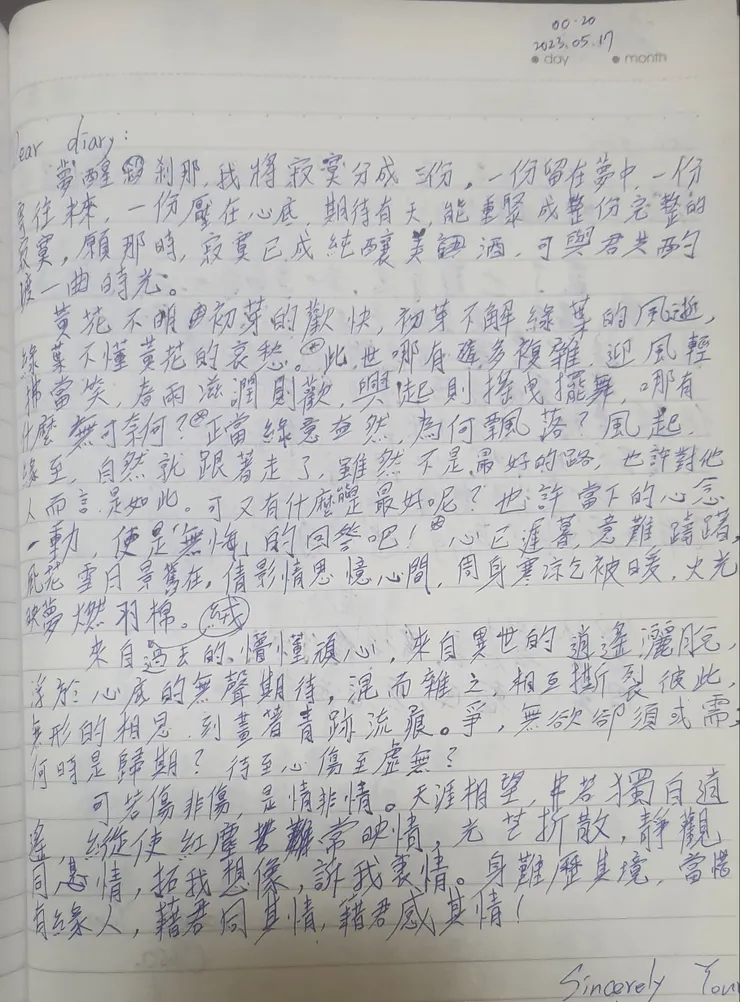 00:20
2023.05.17
day month
ear diary:
夢醒刹那,我將寂寞分成三份,一份留在夢中,一份
往未來,一份壓在心底,期待有天,能重聚成整份完整的
寂寞,願那時,寂寞已成純釀美酒,可與君共酌
渡一曲時光。
黃花不明初芽的歡快,初芽不解綠葉的風逝,
綠葉不懂黃花的哀愁。此世哪有許多複雜,迎風輕
拂當笑,春雨滋潤則歡,興起則搖曳擺舞,哪有
什麼無可奈何?正當綠意盎然,為何飄落?風起,
緣至,自然就跟著走了,雖然不是最好的路,也許對他
人而言是如此。可又有什麼是最好呢?也許當下的心念
一動,便是無悔的回答吧!心已遲暮,意難躊躇,
風花雪月景舊在,倩影情思憶心間,周身寒涼乞被暖,火光
映夢燃羽棉。絨
來自過去的懵懂頑心,來自異世的逍遙灑脫,
浮於心底的無聲期待,混而雜之,相互撕裂彼此,
無形的相思,刻畫著青跡流痕。爭,無欲卻須或需,
何時是歸期?待至心傷至虛無?
可若傷非傷,是情非情。天涯相望,非若獨自逍
遙,縱使紅塵難常映情,光芒折散,靜觀
同思情,拓我想像,訴我衷情。身難歷其境,當惜
有緣人,藉君同其情,藉君感其情!
Sincerely You